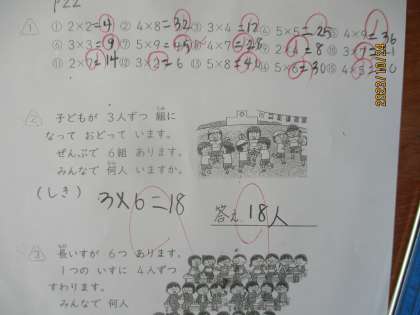 P22
1 ① 2×2=4 ② 4×8=32 3×4=12 5×5=25 4×9=36
⑥ 3×3=9 ⑦ 5×9=45 4×7=28 =8
⑪ =14 =6 ⑬ 5×8=40 =30
2 子どもが 3人ずつ 組に
なって おどって います。
ぜんぶで 6組 あります。
みんなで 何人 いますか。
(しき) 3×6=18
答え 18人
3 長いすが 6つ あります。
1つの いすに 4人ずつ
すわります。
みんなで 何人